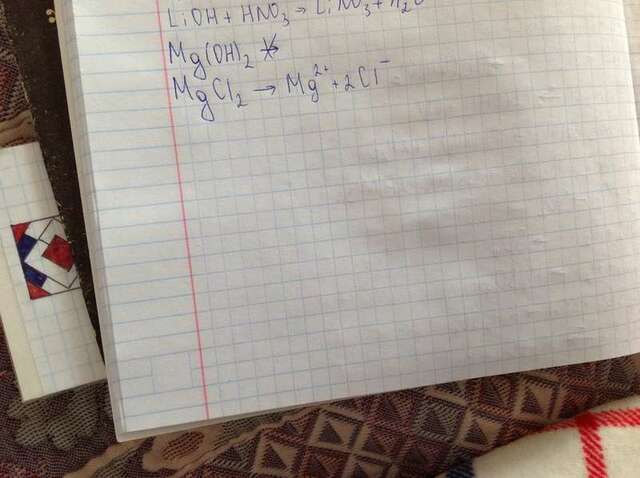 LiOH + HNO₃ → LiNO₃ + H₂O
Mg(OH)₂ ↛
MgCl₂ → Mg²⁺ + 2Cl⁻